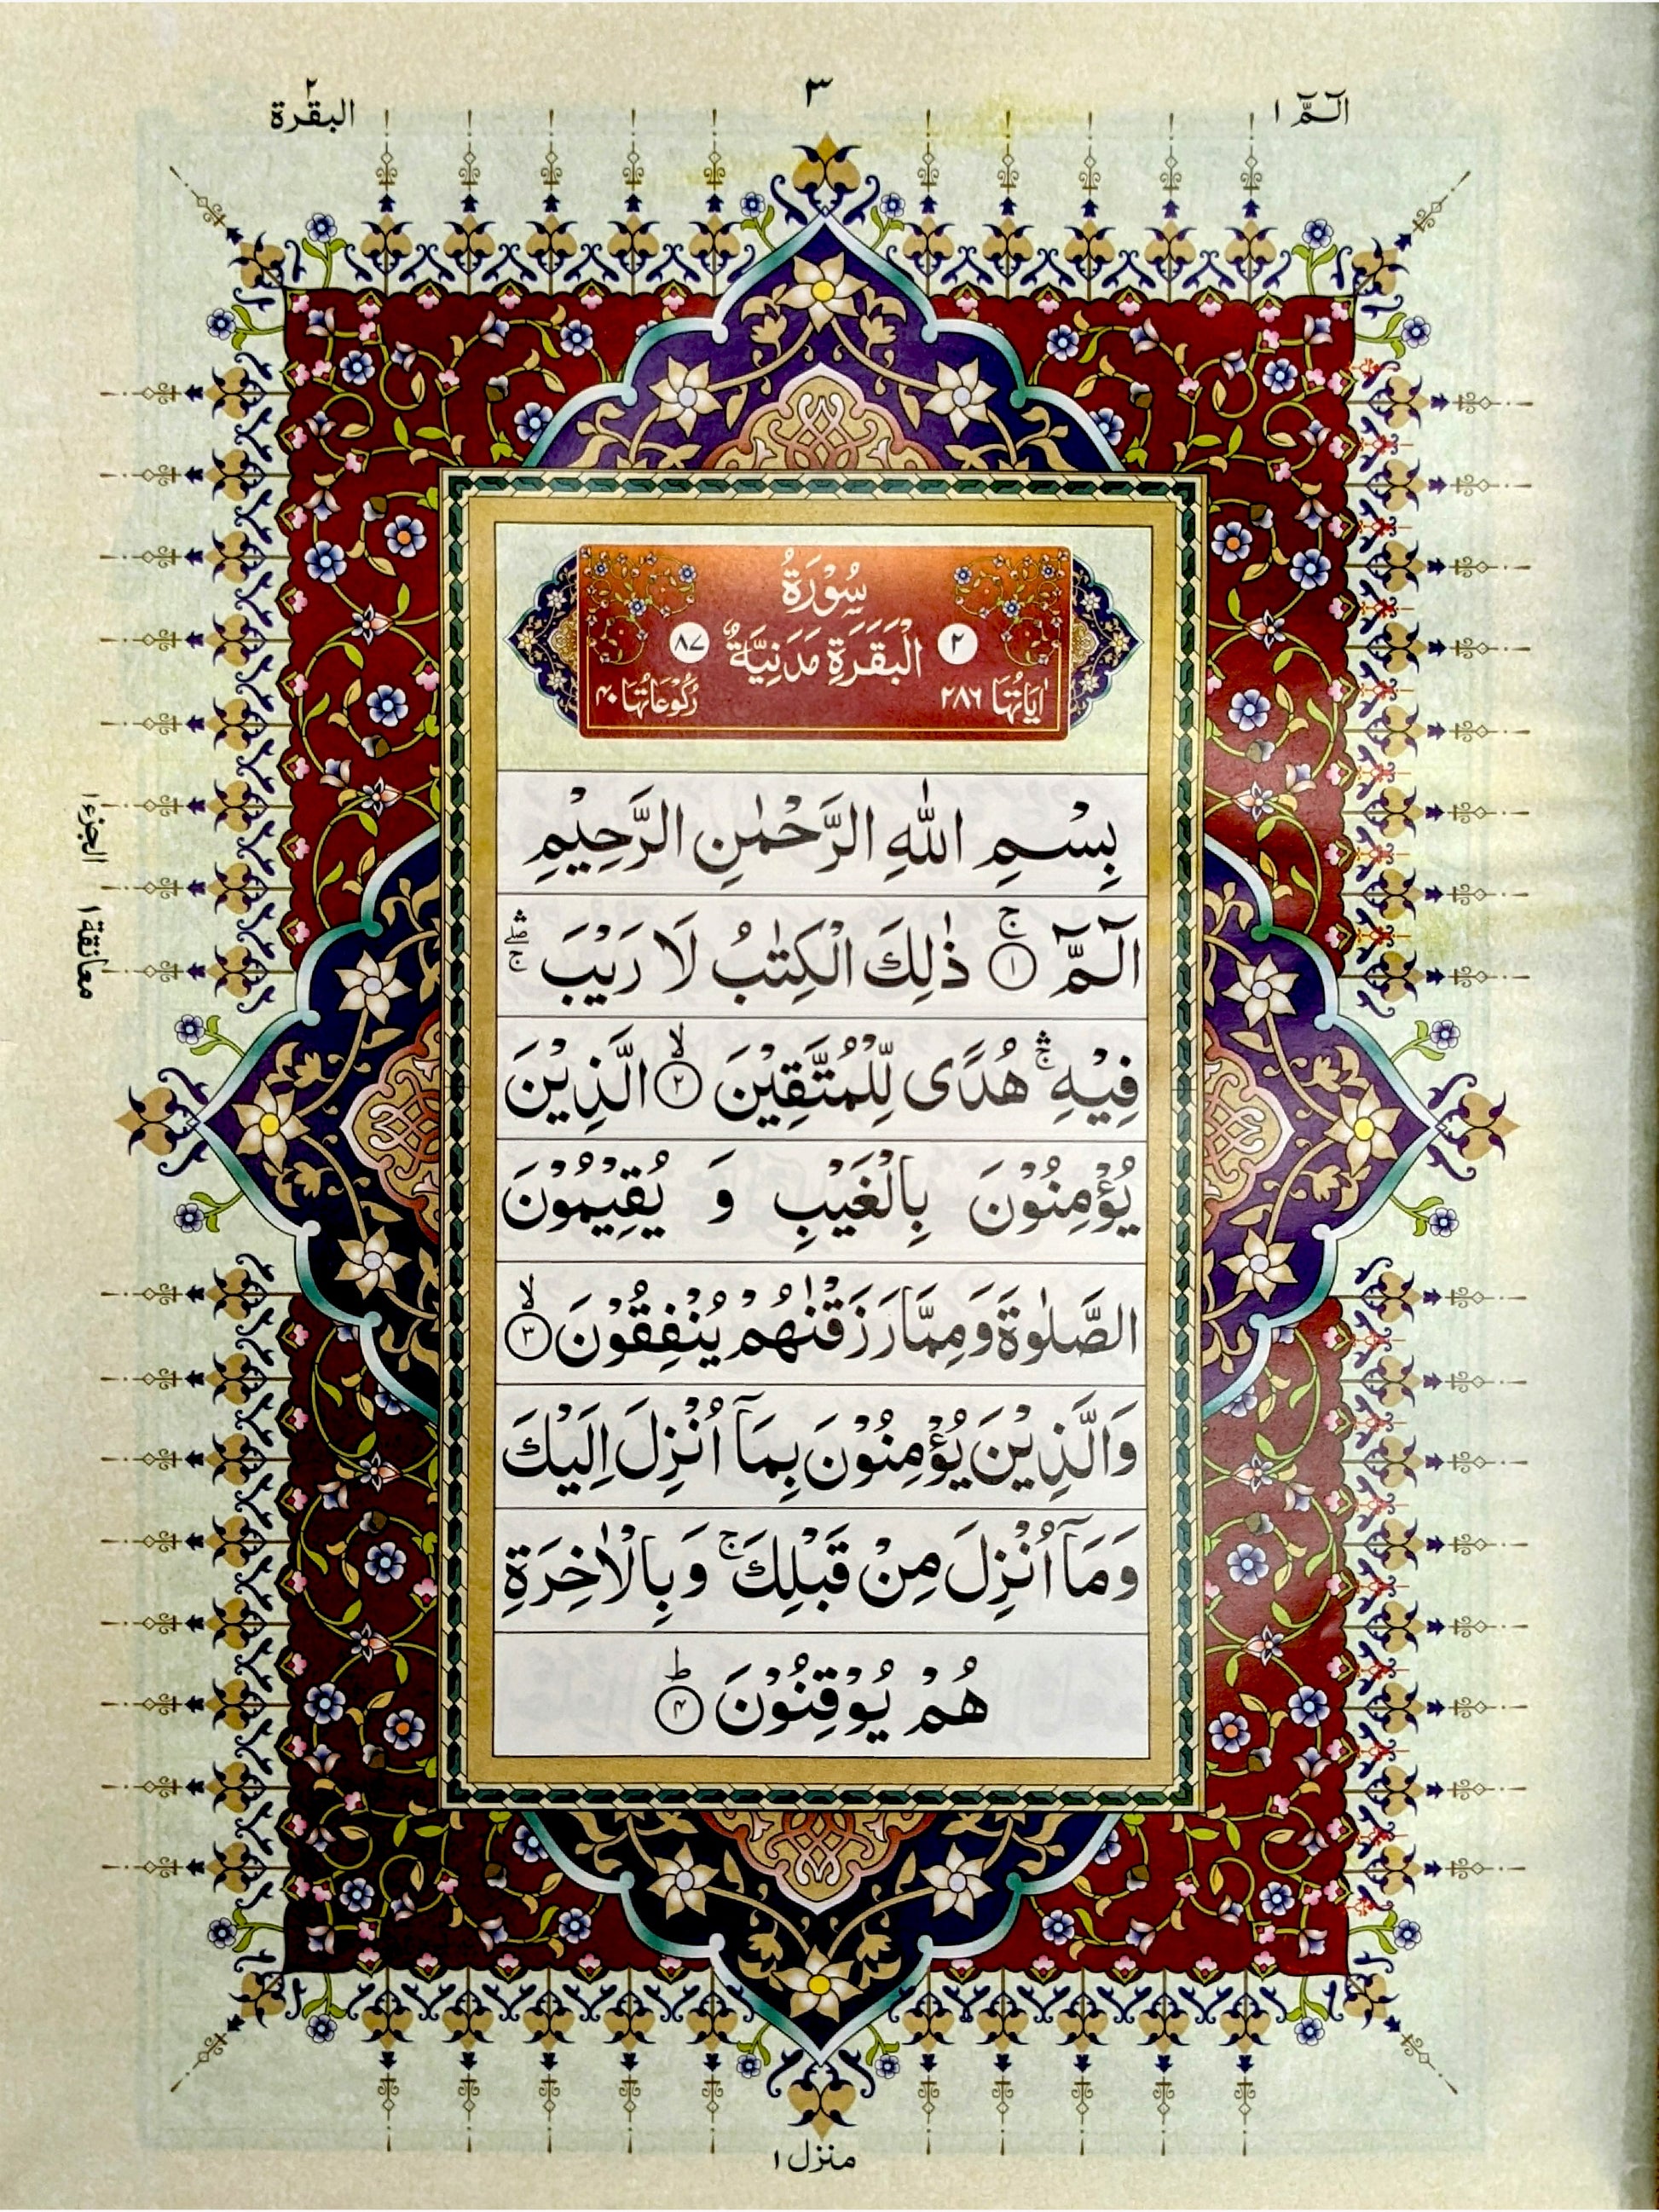 الٓمّٓ ١
٣
البقرة ٢
سُوْرَةُ
٢ الْبَقَرَةِ مَدَنِيَّةٌ ٨٧
اٰيَاتُهَا ٢٨٦ رُكُوْعَاتُهَا ٤٠
بِسْمِ اللّٰهِ الرَّحْمٰنِ الرَّحِيْمِ
الٓمّٓ ۚ﴿١﴾ ذٰلِكَ الْكِتٰبُ لَا رَيْبَ ۛۖۚ
فِيْهِ ۛۚ هُدًى لِّلْمُتَّقِيْنَ ۙ﴿٢﴾ الَّذِيْنَ
يُؤْمِنُوْنَ بِالْغَيْبِ وَ يُقِيْمُوْنَ
الصَّلٰوةَ وَمِمَّا رَزَقْنٰهُمْ يُنْفِقُوْنَ ۙ﴿٣﴾
وَالَّذِيْنَ يُؤْمِنُوْنَ بِمَآ اُنْزِلَ اِلَيْكَ
وَمَآ اُنْزِلَ مِنْ قَبْلِكَ ۚ وَبِالْاٰخِرَةِ
هُمْ يُوْقِنُوْنَ ؕ﴿٤﴾
معانقة ١ الجزء ١
منزل ١